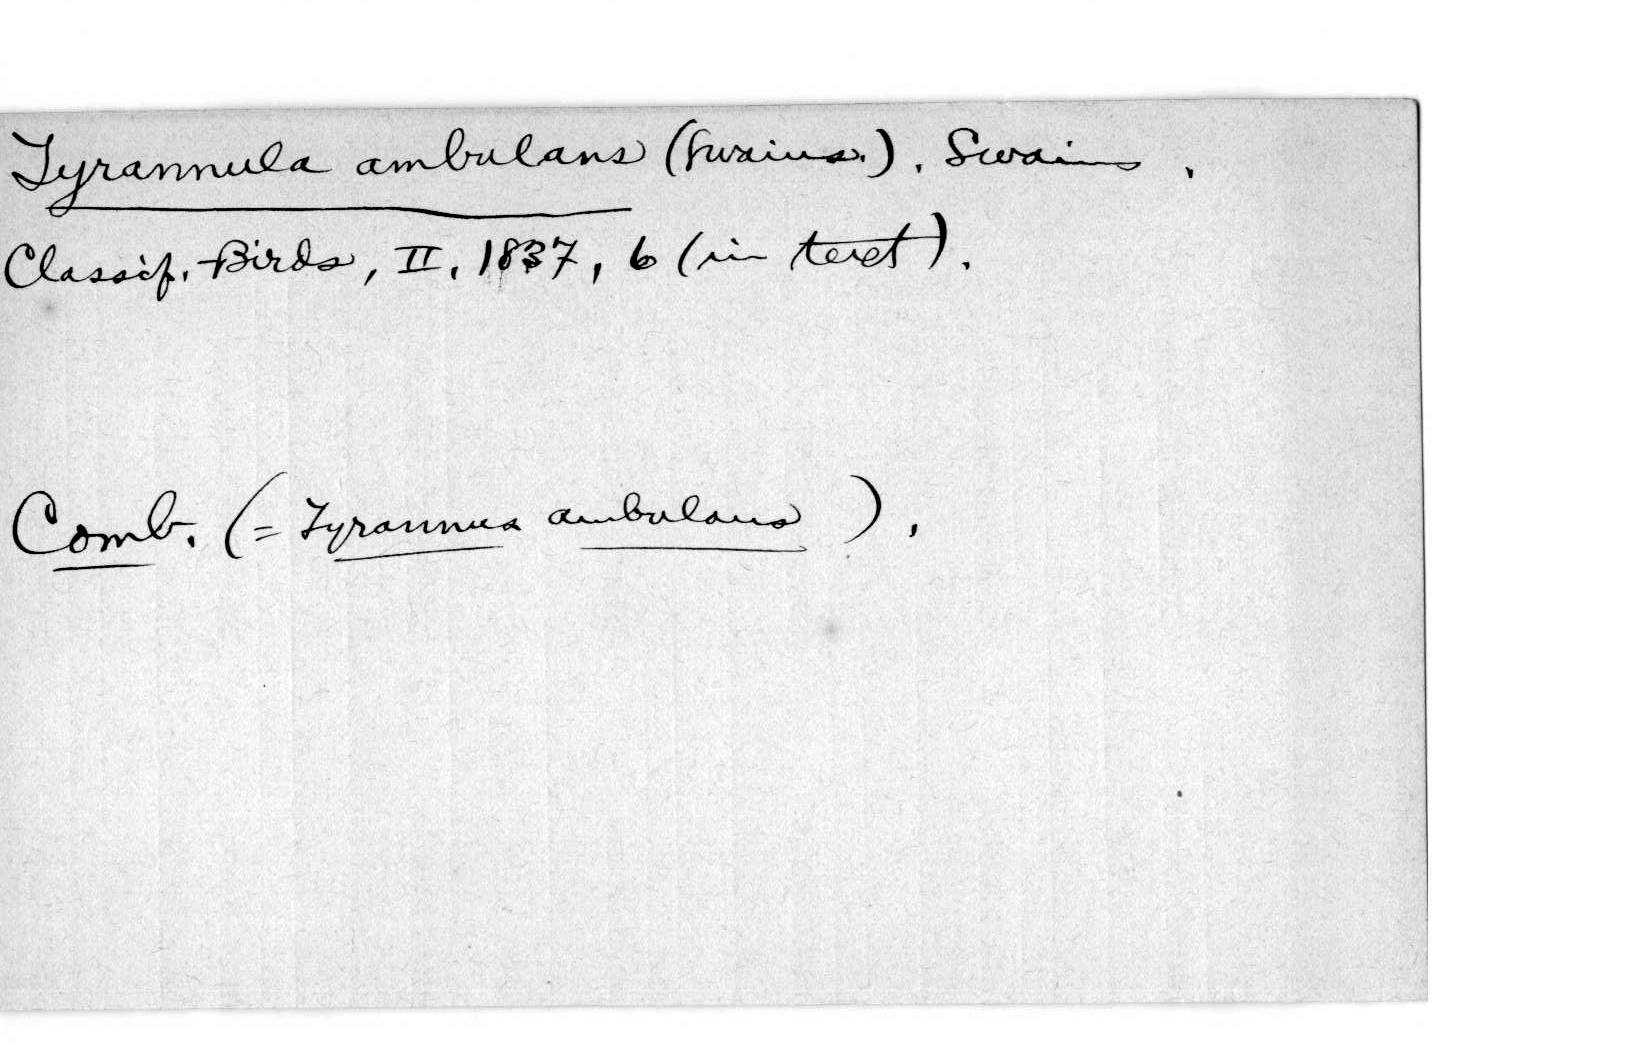 Tyrannula ambulans (Swains.). Swains.
Classif. Birds, II, 1837, 6 (in text).
Comb. (= Tyrannus ambulans).